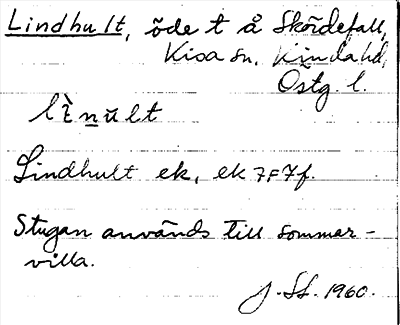 Lindhult, öde t å Skördefall,
Kisa sn, Kinda hd,
Östg. l.
lìnult
Lindhult ek, ek 7F7f.
Stugan används till sommar-
villa.
J. Sf. 1960.